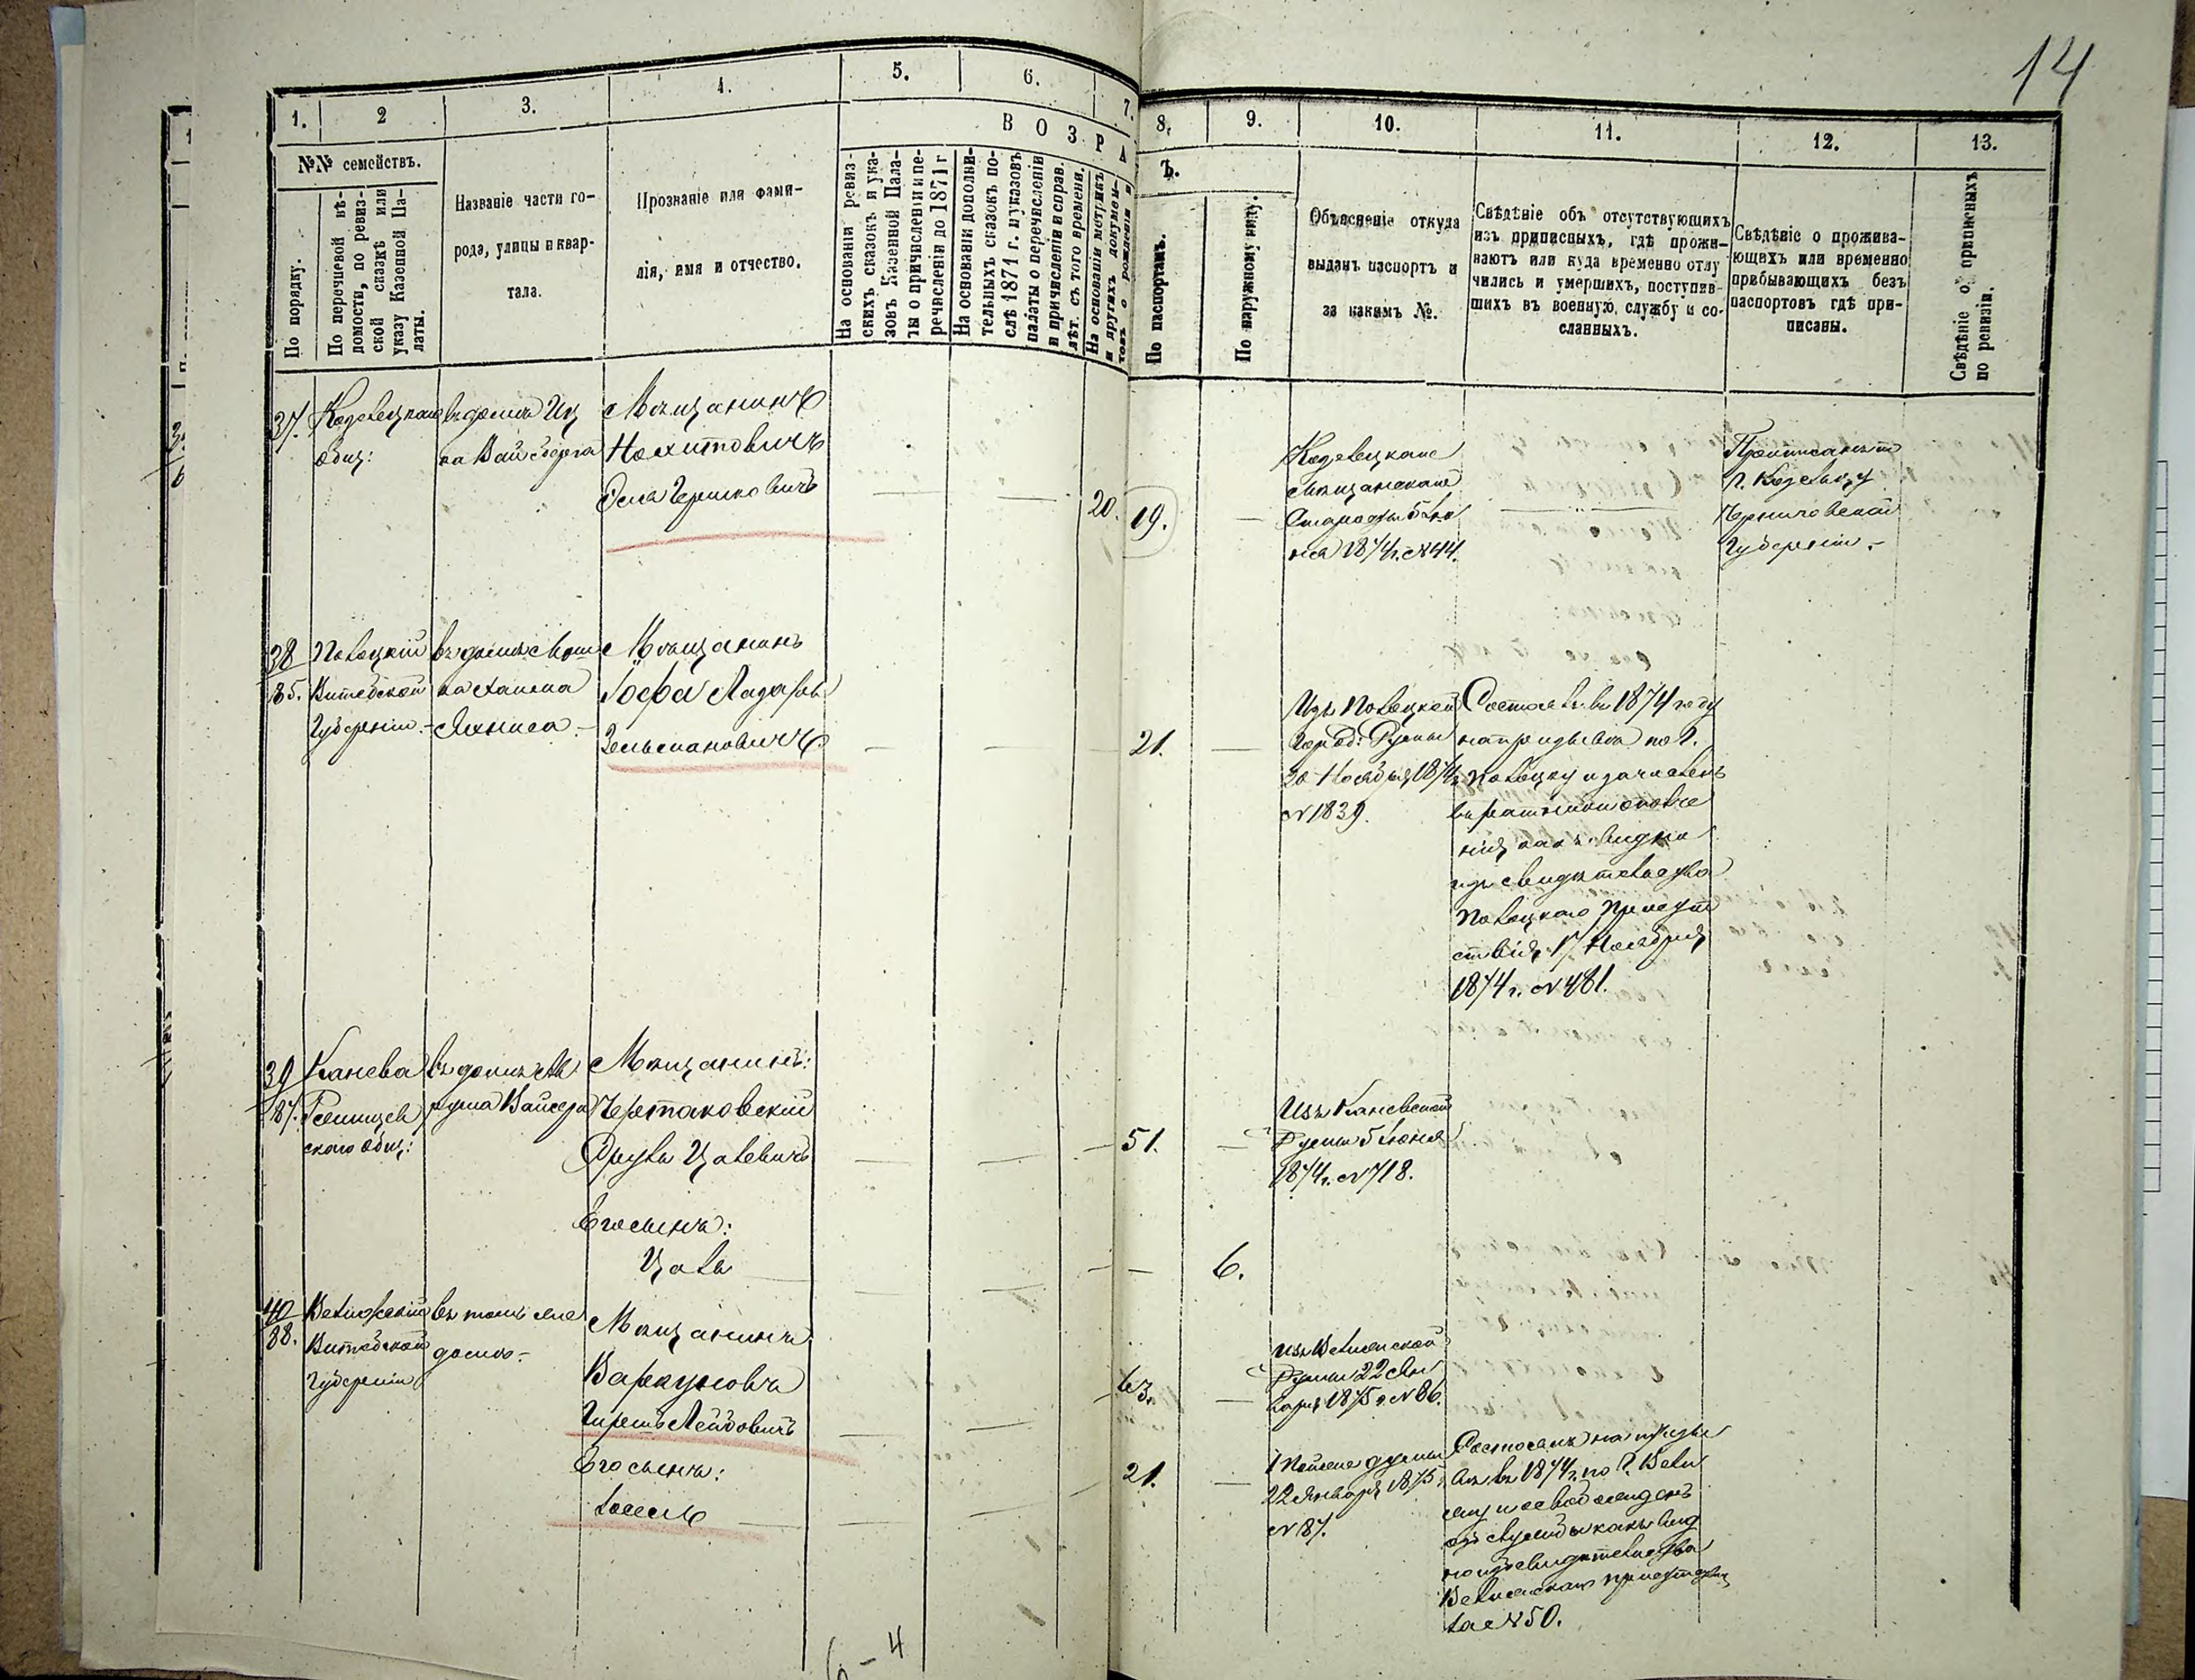 14
1.
2
3.
4.
5.
6.
7.
8.
9.
10.
11.
12.
13.
№№ семействъ.
По порядку.
По перечневой вѣ-
домости, по ревиз-
ской сказкѣ или
указу Казенной Па-
латы.
Названіе части го-
рода, улицы и квар-
тала.
Прозваніе или фами-
лія, имя и отчество.
ВОЗРА
Ъ.
На основаніи ревиз-
скихъ сказокъ и ука-
зовъ Казенной Пала-
ты о причисленіи и пе-
речисленіи до 1871 г
На основаніи дополни-
тельныхъ сказокъ по-
слѣ 1871 г. и указовъ
палаты о перечисленіи
и причисленіи и справ.
лѣт. съ того времени.
На основаніи метрикъ
и другихъ докумен-
товъ о рожденіи и
По паспортамъ.
По наружному виду.
Объясненіе откуда
выданъ паспортъ и
за какимъ №.
Свѣдѣніе объ отсутствующихъ
изъ приписныхъ, гдѣ прожи-
ваютъ или куда временно отлу
чились и умершихъ, поступив-
шихъ въ военную службу и со-
сланныхъ.
Свѣдѣніе о прожива-
ющихъ или временно
прибывающихъ безъ
паспортовъ гдѣ при-
писаны.
Свѣдѣніе о приписныхъ
по ревизіи.
37.
общ:
Мѣщанинъ
20.
19.
Козелецкаго
мѣщанскаго
Старосты 5 Ію
ня 1874 г. №44.
г. Козельцу
Черниговской
Губерніи.-
38
85.
Полоцкій
Витебской
Губерніи.-
Мѣщанинъ
Зельмановичъ
21.
Изъ Полоцкой
Гор Об: Думы
30 Ноября 1874 г
№1839.
Состоялъ въ 1874 году
на призывѣ по г.
Полоцку и зачисленъ
въ ратники ополче
нія какъ видно
изъ свидѣтельства
Полоцкаго Присут
ствія 17 Ноября
1874 г. №481.
39
87.
Канева
скаго общ:
Мѣщанинъ:
Чертковскій
Сруль Цалевичъ
51.
Изъ Каневской
Думы 5 Іюня
1874 г. №718.
Его сынъ:
Цаль
6.
40
88.
Велижскій
Витебской
Губерніи
въ томъ же
домѣ.-
Мѣщанинъ
Гиршъ Лейбовичъ
63.
Изъ Велижской
Думы 22 Ян
варя 1875 г. №86.
Его сынъ:
21.
думы
22 Января 1875 г
№87.
Состоялъ на призы
вѣ въ 1874 г. по г. Вели
жу и освобожденъ
отъ службы какъ вид
но изъ свидѣтельства
Велижскаго присутствія
№50.
6-4